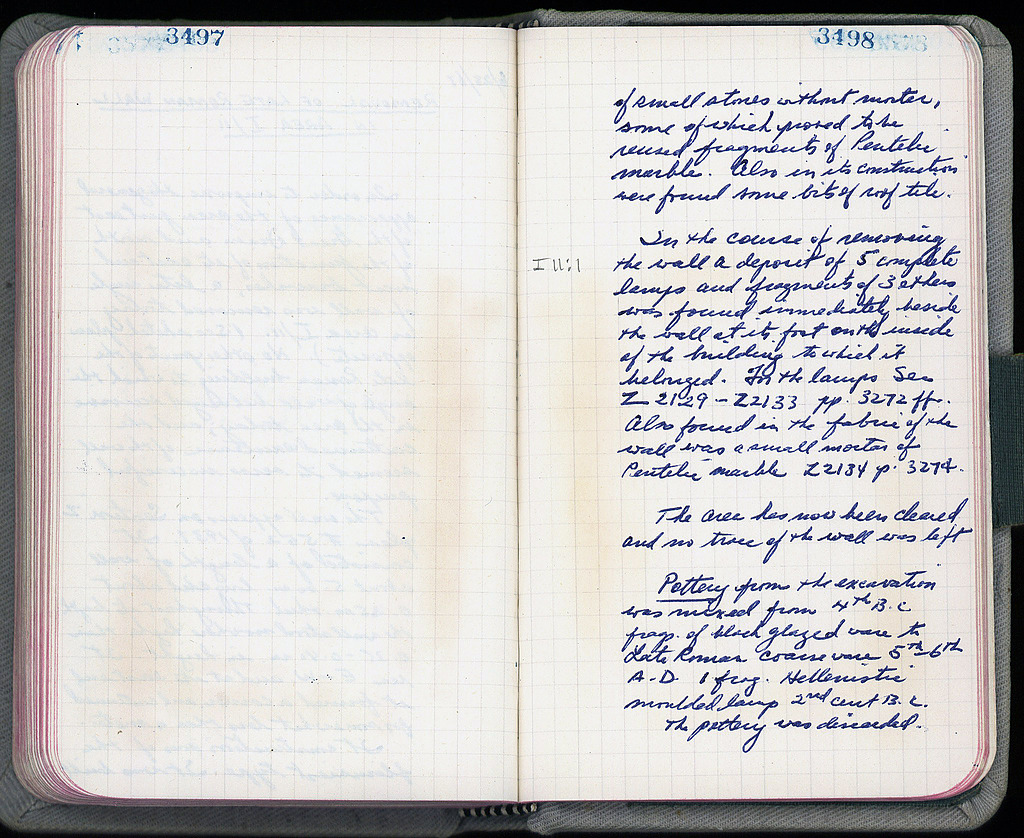 3497
3498
of small stones without mortar,
some of which proved to be
reused fragments of Pentelic
marble. Also in its construction
were found some bits of roof tile.
In the course of removing
I 11:1
the wall a deposit of 5 complete
lamps and fragments of 3 others
was found immediately beside
the wall at its foot on the inside
of the building to which it
belonged. For the lamps See
Σ 2129 - Σ2133 pp. 3272 ff.
Also found in the fabric of the
wall was a small mortar of
Pentelic marble Σ2134 p. 3274.
The area has now been cleared
and no trace of the wall was left
Pottery from the excavation
was mixed from 4th B.C
frags. of black glazed ware to
Late Roman coarse ware 5th-6th
A.D. 1 frag. Hellenistic
moulded lamp 2nd cent B.C.
The pottery was discarded.